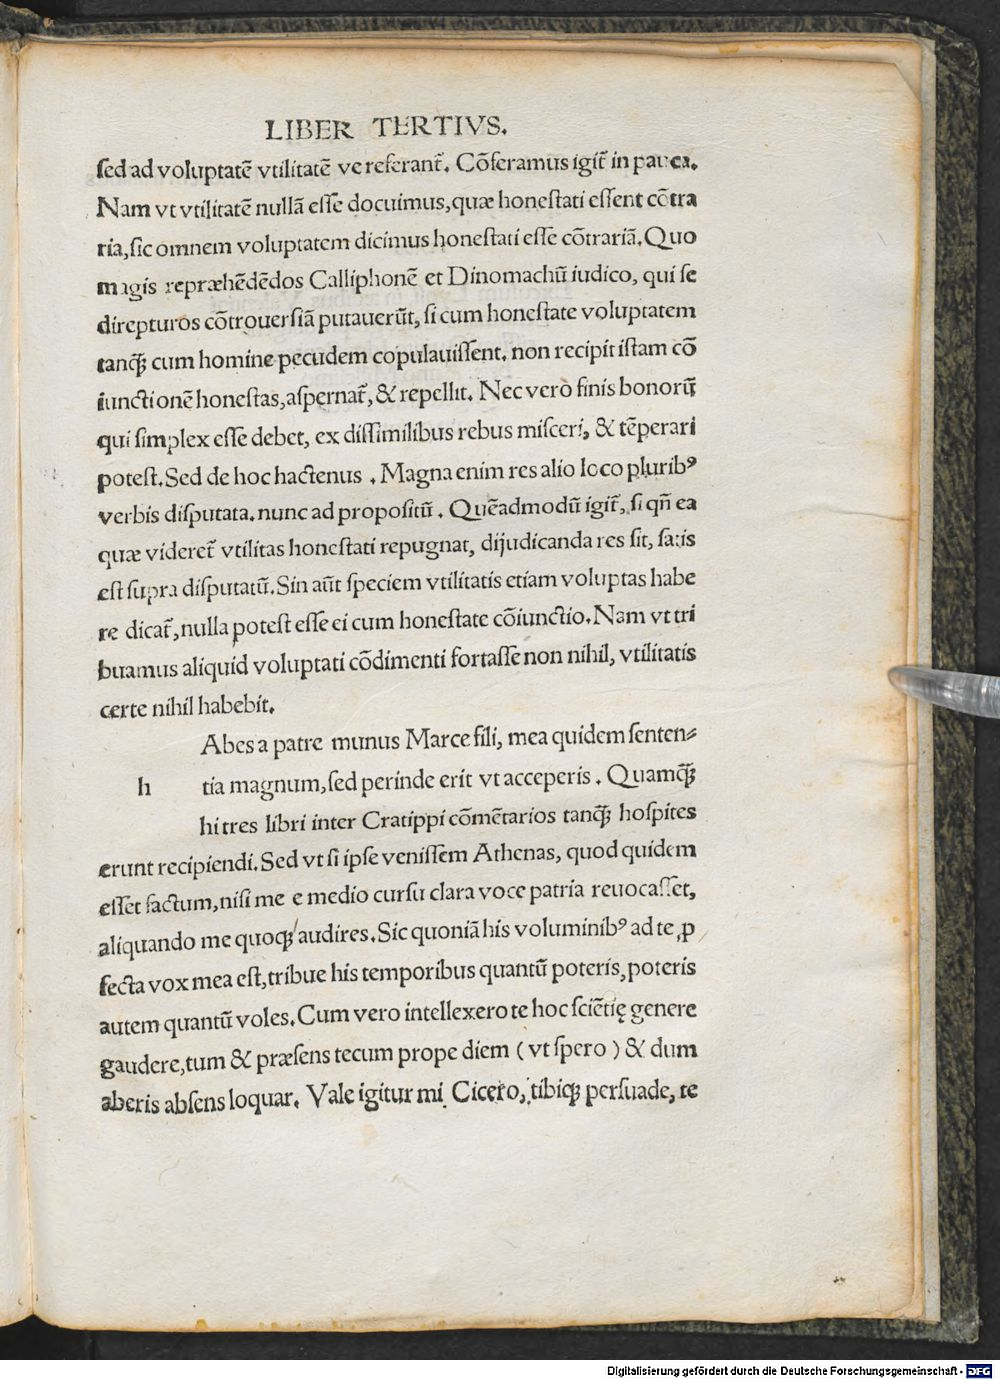 LIBER TERTIVS.
ſed ad voluptatē vtilitatē ve referant̃. Cõferamus igit̃ in pauca.
Nam vt vtilitatē nullã eſſe docuimus, quæ honeſtati eſſent cõtra
ria, ſic omnem voluptatem dicimus honeſtati eſſe cõtrariã. Quo
magis repræhēdēdos Calliphonē et Dinomachũ iudico, qui ſe
direpturos cõtrouerſiã putauerũt, ſi cum honeſtate voluptatem
tanqꝫ cum homine pecudem copulauiſſent. non recipit iſtam cõ
iunctionē honeſtas, aſpernat̃, & repellit. Nec vero finis bonorũ
qui ſimplex eſſe debet, ex diſſimilibus rebus miſceri, & tēperari
poteſt. Sed de hoc hactenus . Magna enim res alio loco pluribꝰ
verbis diſputata. nunc ad propoſitũ . Quēadmodũ igit̃, ſi qñ ea
quæ videret̃ vtilitas honeſtati repugnat, dijudicanda res ſit, ſatis
eſt ſupra diſputatũ. Sin aũt ſpeciem vtilitatis etiam voluptas habe
re dicat̃, nulla poteſt eſſe ei cum honeſtate cõiunctio. Nam vt tri
buamus aliquid voluptati cõdimenti fortaſſe non nihil, vtilitatis
certe nihil habebit.
Abes a patre munus Marce fili, mea quidem ſenten⸗
h tia magnum, ſed perinde erit vt acceperis . Quamqꝫ
hi tres libri inter Cratippi cõmētarios tanqꝫ hoſpites
erunt recipiendi. Sed vt ſi ipſe veniſſem Athenas, quod quidem
eſſet factum, niſi me e medio curſu clara voce patria reuocaſſet,
aliquando me quoqꝫ audires. Sic quoniã his voluminibꝰ ad te ꝓ
fecta vox mea eſt, tribue his temporibus quantũ poteris, poteris
autem quantũ voles. Cum vero intellexero te hoc ſciētię genere
gaudere, tum & præſens tecum prope diem ( vt ſpero ) & dum
aberis abſens loquar. Vale igitur mi Cicero, tibiqꝫ perſuade, te
Digitalisierung gefördert durch die Deutsche Forschungsgemeinschaft - DFG